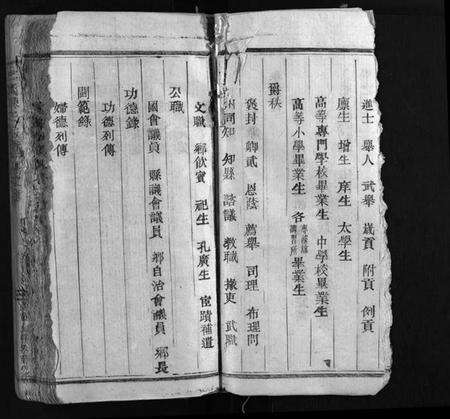 進士 舉人 武舉 歲貢 附貢 例貢
廪生 增生 庠生 太學生
高等專門學校畢業生 中學校畢業生
高等小學畢業生 各專修館講習所畢業生
爵秩
褒封 卿貳 恩蔭 薦舉 司理 布理問
州同知 知縣 諮議 教職 掾吏 武職
文職 鄉飲賓 祀生 孔廣生 宦蹟補遺
公職
國會議員 縣議會議員 鄉自治會議員 鄉長
功德錄
功德列傳
閫範錄
婦德列傳